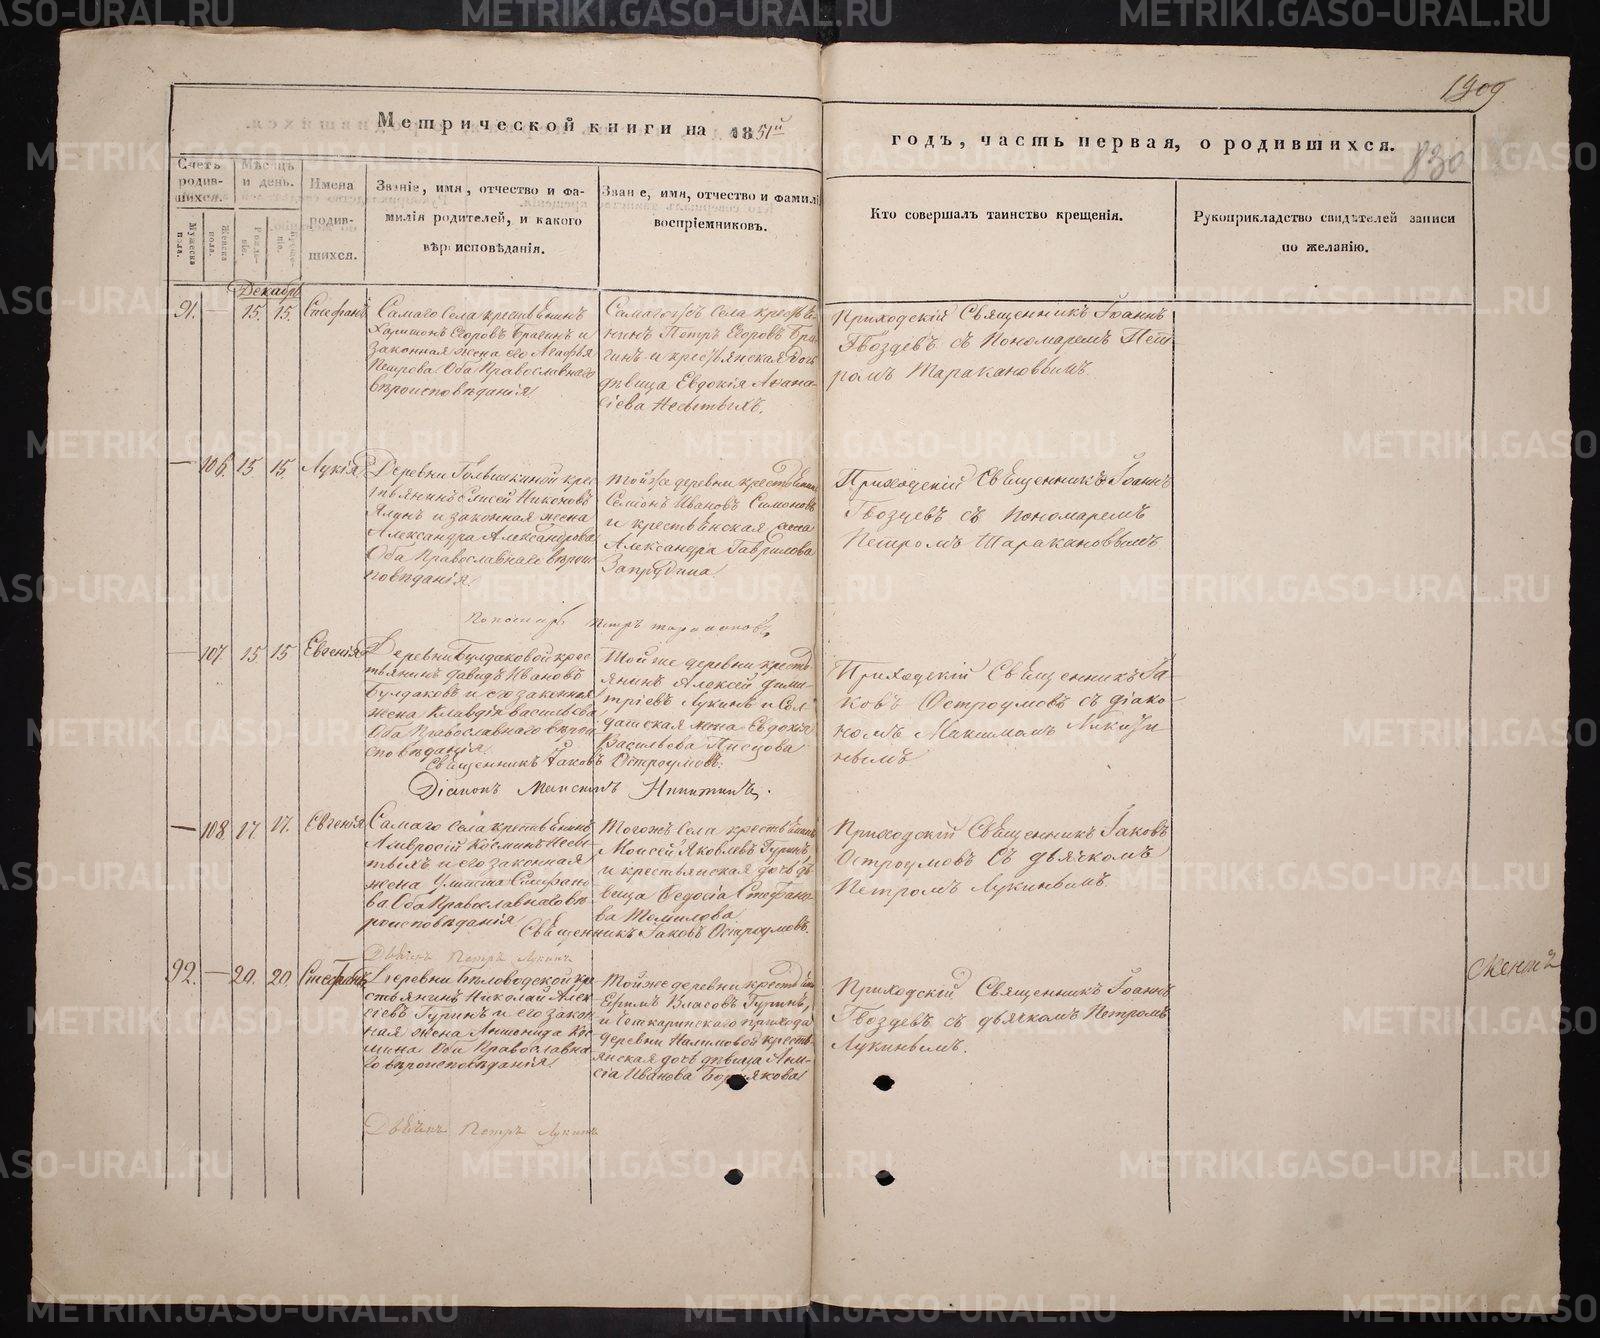 1909
830
Метрической книги на 1851й
годъ, часть первая, о родившихся.
Счетъ родив-шихся.
Мужеска пола.
Женска пола.
Мѣсяцъ и день.
Рожде-
ніе.
Креще-
ніе.
Имена
родив-
шихся.
Званіе, имя, отчество и фа-
милія родителей, и какого
вѣроисповѣданія.
Званіе, имя, отчество и фамилія
воспріемниковъ.
Кто совершалъ таинство крещенія.
Рукоприкладство свидѣтелей записи
по желанію.
Декабрь
91. — 15. 15. Стефанъ
Самаго Села крестьянинъ
Харитонъ Егоровъ Брагинъ и
законная жена его Агафья
Петрова Оба Православнаго
вѣроисповѣданія
Самагожъ Села крестья-
нинъ Петръ Егоровъ Бра-
гинъ и крестьянская дочь
дѣвица Евдокія Афана-
сіева Несытыхъ.
Приходскій Священникъ Іоаннъ
Гвоздевъ съ Пономаремъ Пет
ромъ Таракановымъ
— 106 15 15. Лукія
Деревни крес
тьянинъ Елисей Никоновъ
Ялунъ и законная жена
Александра Александрова
Оба Православнаго вѣроис
повѣданія.
Той же деревни крестьянинъ
Семіонъ Ивановъ Симоновъ
и крестьянская жена
Александра Гаврилова
Запрудина
Приходскій Священникъ Іоаннъ
Гвоздевъ съ Пономаремъ
Петромъ Таракановымъ
Пономарь Петръ Таракановъ
— 107 15 15 Евгенія
Деревни Булдаковой крес
тьянинъ Давидъ Ивановъ
Булдаковъ и его законная
жена Клавдія Васильева
Оба Православнаго вѣрои
сповѣданія
Той же деревни кресть
янинъ Алексей Дими-
тріевъ Лукинъ и Сол
датская жена Евдокія
Васильева Писцова
Приходскій Священникъ Іа-
ковъ Остроумовъ съ діако-
номъ Максимомъ Никити
нымъ
Священникъ Іаковъ Остроумовъ.
Діаконъ Максимъ Никитинъ.
— 108 17 17. Евгенія
Самаго Села крестьянинъ
Амвросій Косминъ Несы-
тыхъ и его законная
жена Стефано
ва Оба Православнаго вѣ
роисповѣданія
Тогожъ Села крестьянинъ
Моисей Яковлевъ Гуринъ
и крестьянская дочь дѣ
вица Федосіа Стефано-
ва Томилова
Приходскій Священникъ Іаковъ
Остроумовъ съ дьячкомъ
Петромъ Лукинымъ
Священникъ Іаковъ Остроумовъ.
Дьячекъ Петръ Лукинъ
92. — 20. 20. Стефанъ
Деревни Бѣловодской кре
стьянинъ Николай Алек
сіевъ Гуринъ и его закон
ная жена Антонида Кос
мина Оба Православна
го вѣроисповѣданія
Той же деревни крестьянинъ
Ефимъ Власовъ Гуринъ,
и прихода
деревни Налимовой кресть
янская дочь дѣвица Ани-
сіа Иванова
Приходскій Священникъ Іоаннъ
Гвоздевъ съ дьячкомъ Петромъ
Лукинымъ.
Дьячекъ Петръ Лукинъ